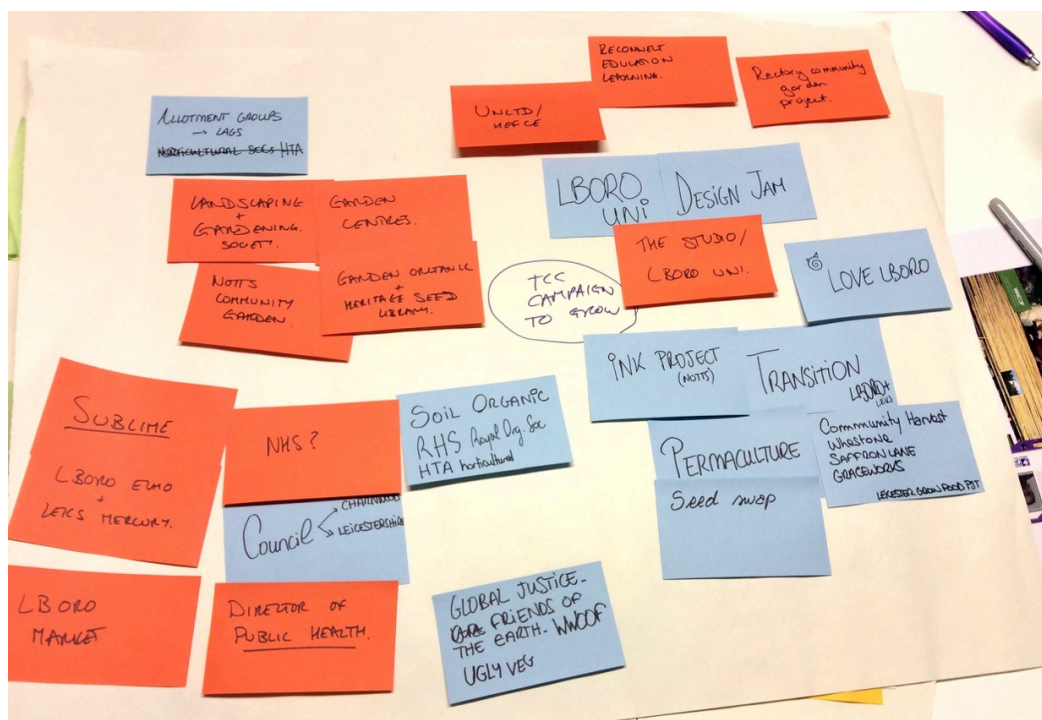 RECONNECT
EDUCATION
LEARNING.
Rectory community
garden
project.
UNLTD/
HEFCE
ALLOTMENT GROUPS
→ LAGS
HORTICULTURAL SOCS HTA
LANDSCAPING
+
GARDENING
SOCIETY.
GARDEN
CENTRES.
LBORO
UNI
DESIGN JAM
THE STUDIO/
LBORO UNI.
LOVE LBORO
NOTTS
COMMUNITY
GARDEN.
GARDEN ORGANIC
+
HERITAGE SEED
LIBRARY.
TCC
CAMPAIGN
TO GROW
INK PROJECT
(NOTTS)
TRANSITION
LBORO+
LEICS
SUBLIME
LBORO ECHO
+
LEICS MERCURY.
NHS?
SOIL ORGANIC
RHS Royal Org. Soc
HTA horticultural
PERMACULTURE
Seed swap
Community Harvest
WHESTONE
SAFFRON LANE
GRACEWORKS
LEICESTER GROW FOOD PJT
Council
CHARNWOOD
LEICESTERSHIRE
LBORO
MARKET
DIRECTOR OF
PUBLIC HEALTH.
GLOBAL JUSTICE-
FRIENDS OF
THE EARTH- WWOOF
UGLY VEG